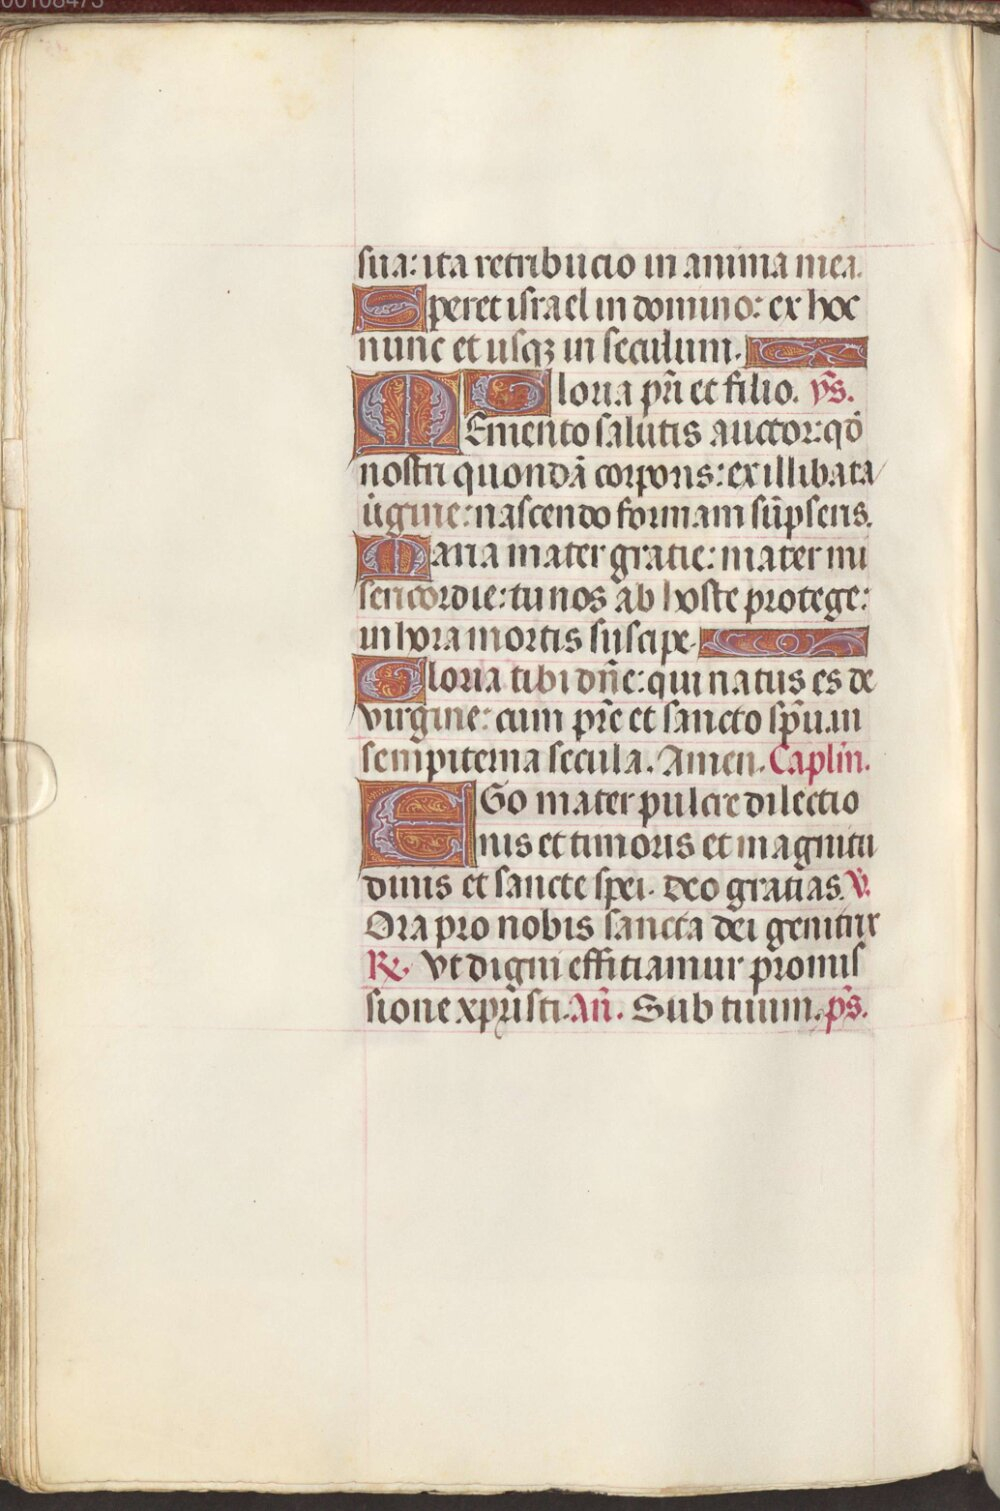 00108473
sua: ita retribucio in anima mea.
Speret israel in domino: ex hoc
nunc et usqȝ in seculum.
Gloria pr̃i et filio. ym̃s.
MEmento salutis auctor: qd̄
nostri quondā corporis: ex illibata
u̇gine: nascendo formam sūpseris.
Maria mater gratie: mater mi
sericordie: tu nos ab hoste protege:
in hora mortis suscipe.
Gloria tibi dñe: qui natus es de
virgine: cum pr̃e et sancto sp̄u. in
sempiterna secula. Amen. Caplm̃.
EGo mater pulcre dilectio
nis et timoris et magnitu
dinis et sancte spei. deo gratias. V̇.
Ora pro nobis sancta dei genitrix
R̃. vt digni efficiamur promis
sione xpristi. Añ. Sub tuum. ps̃.